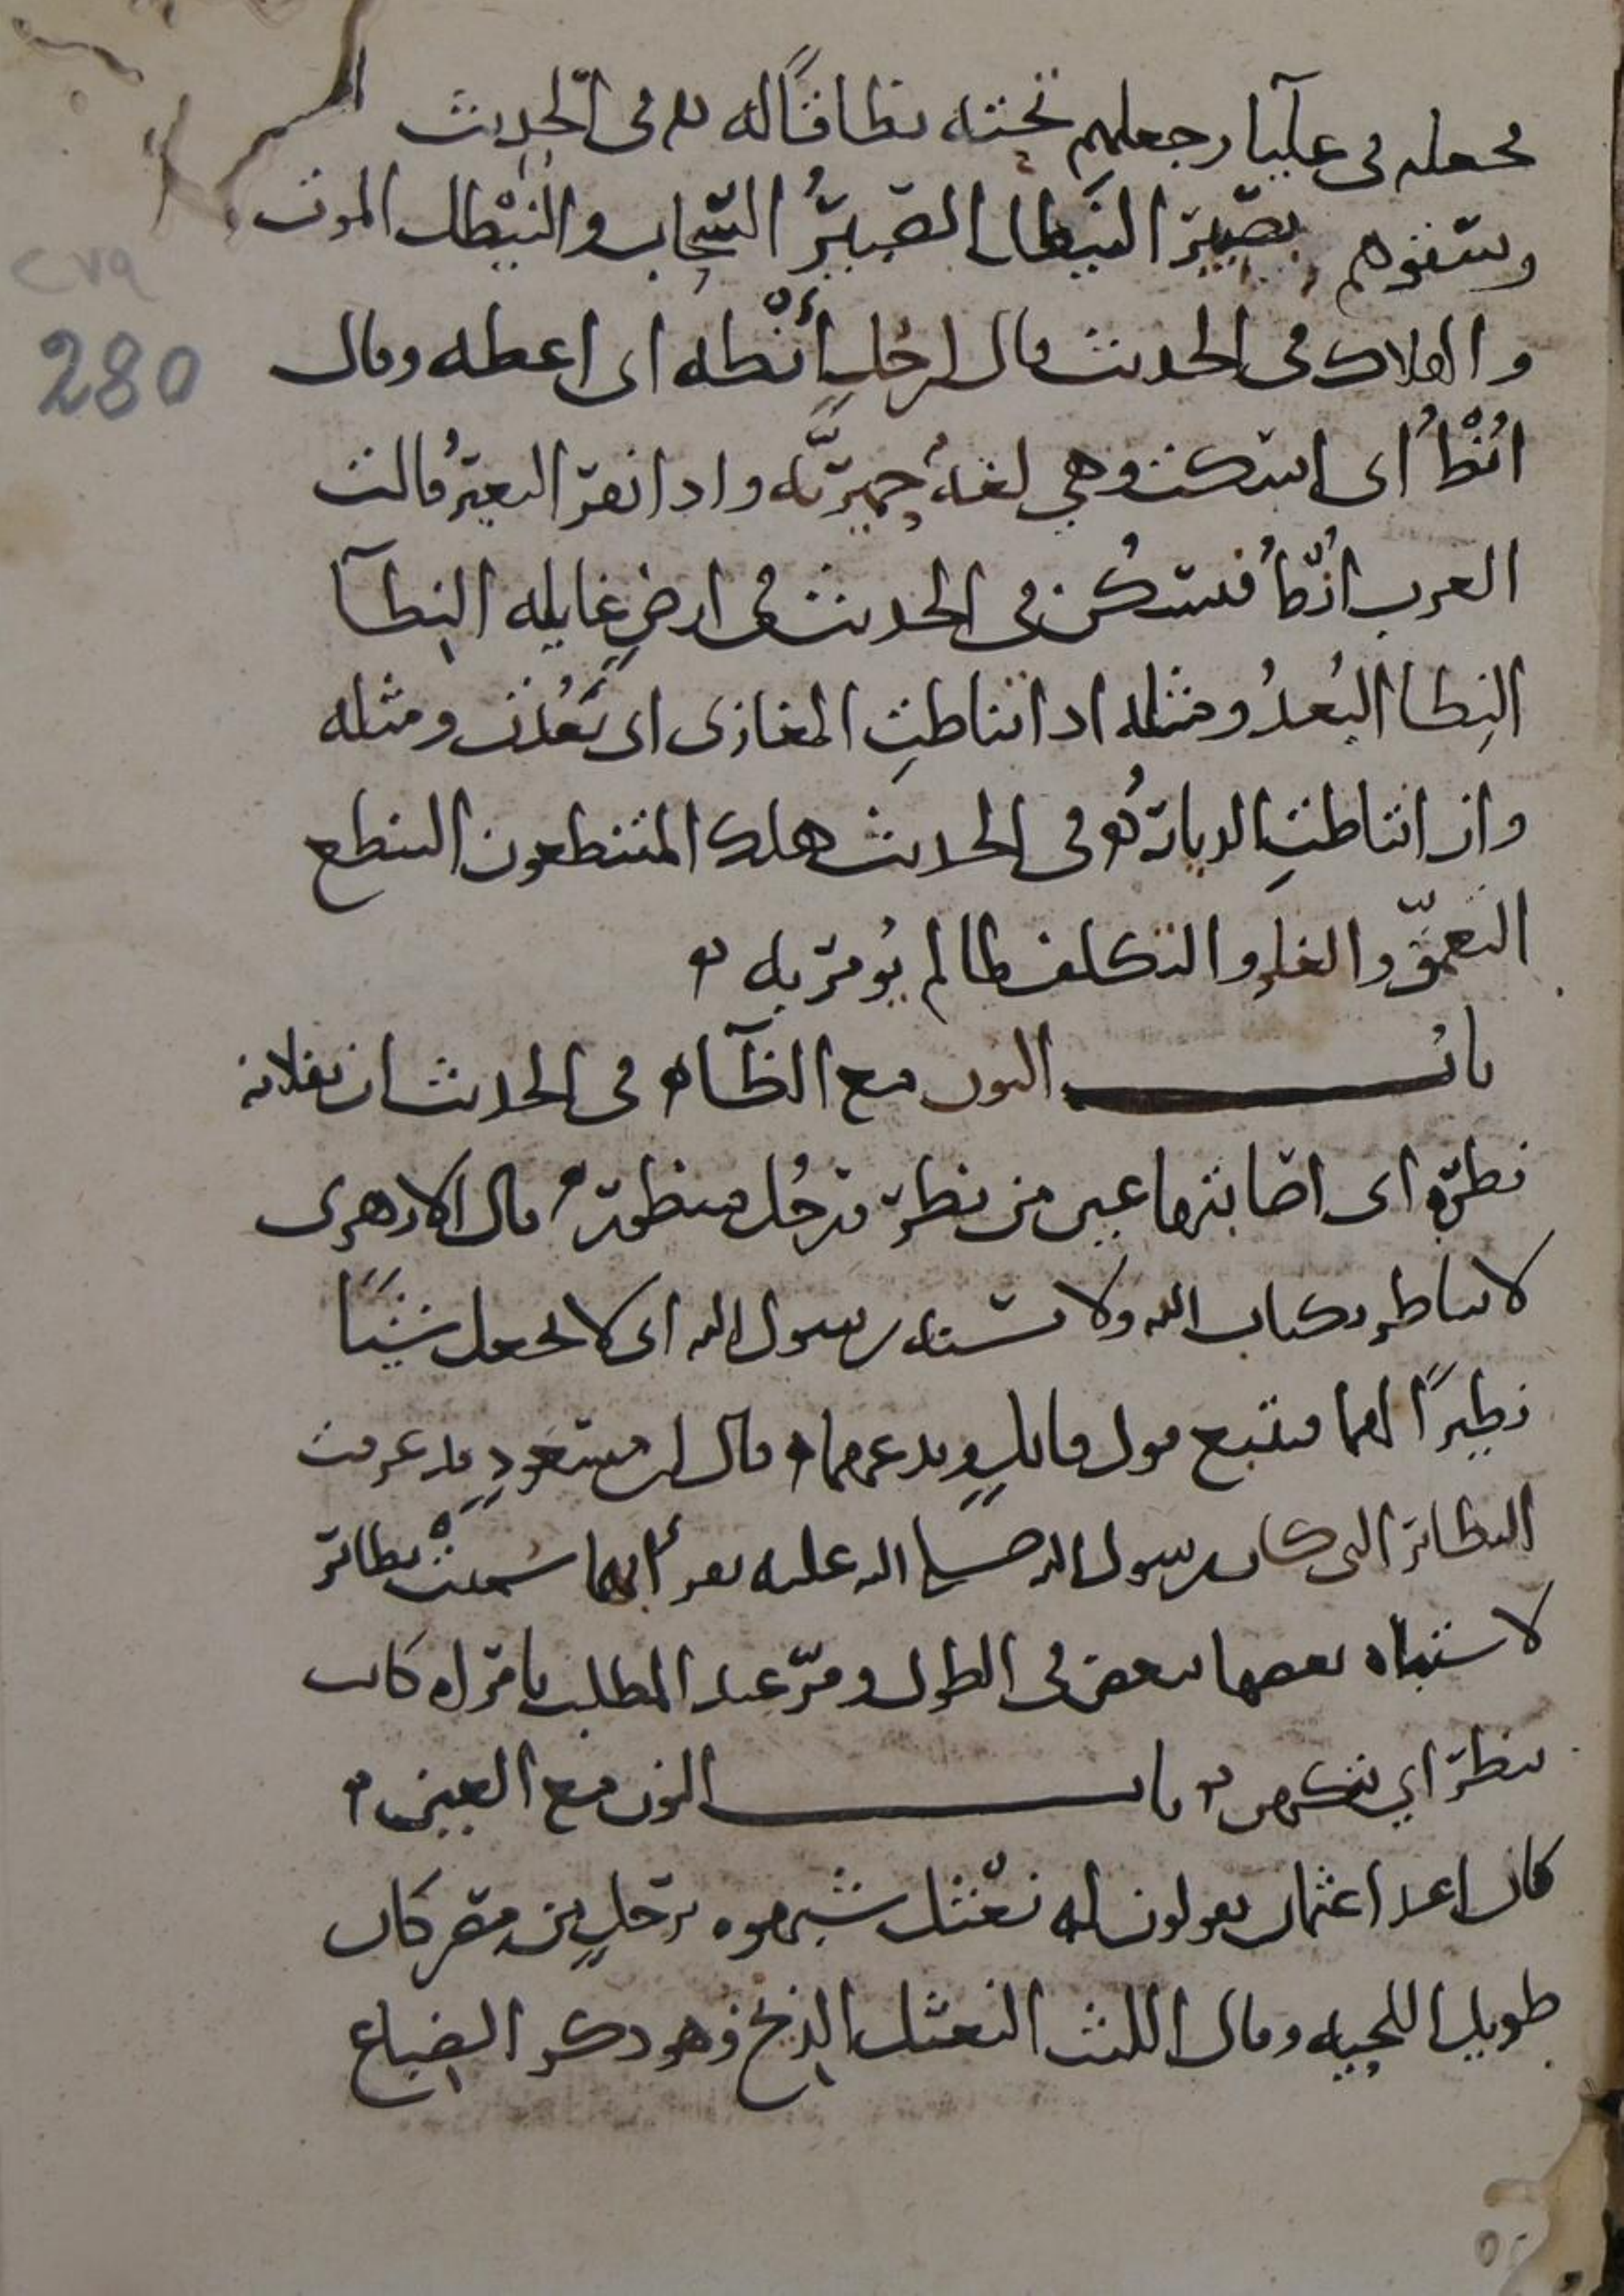 فجعله في علياء وجعلهم تحته نطاقًا له في الحديث
وسقوهم بصبير النَّيطل الصبيرُ السحاب والنَّيْطل الموت
والهلاك في الحديث قال لرجلٍ أَنْطه اي اعطه وقال
اُنْطُ اي اسكت وهي لغةٌ حِميريَّه واذا نفر البعيرُ قالت
العرب اُنْطُ فيسكُن في الحديث في ارضٍ غايله النِطآ
النِطا البُعدُ ومثله اذا تناطتِ المغازي اي بَعُدَت ومثله
واذ انتاطتِ الديارُ في الحديث هلك المتنطعون التنطع
التعمّق والغلو والتكلف لما لم يُومر به
بابُ النون مع الظآء في الحديث ان بفلانه
نظرة اي اصابتها عين من نظرة ورجُل منظور قال الازهري
لا تناظر بكتاب الله ولا بسنة رسول الله اي لا تجعل شَيئًا
نظيرًا لهما فتتبع قول قايلٍ وتدعهما قال ابن مسعودٍ قد عرفت
النظائر التي كان رسول الله صلى الله عليه يقرأ بها سُميتْ نظائر
لاشتباه بعضها ببعض في الطول ومرّ عبد المطلب بامراه كانت
تنظر اي تتكهن باب النون مع العين
كان اعداء عثمان يقولون له نَعْثل شبهوه برجلٍ من مصر كان
طويل اللحيه وقال الليث النعثل الذيخ وهو ذكر الضباع
280
٢٧٩